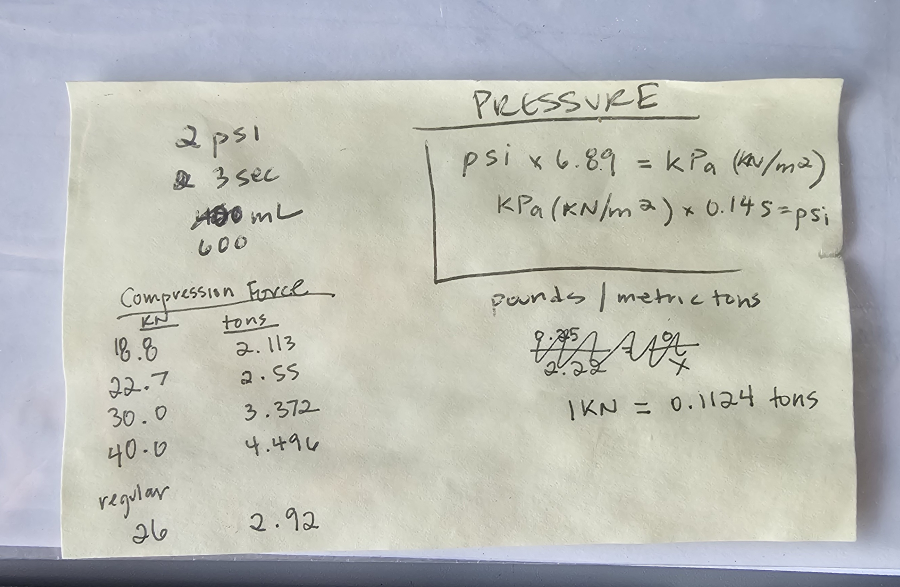 2 psi
3 sec
mL
600
Compression Force
KN tons
18.8 2.113
22.7 2.55
30.0 3.372
40.0 4.496
regular
26 2.92
PRESSURE
psi x 6.89 = kPa (KN/m2)
kPa (KN/m2) x 0.145 = psi
pounds / metric tons
1KN = 0.1124 tons